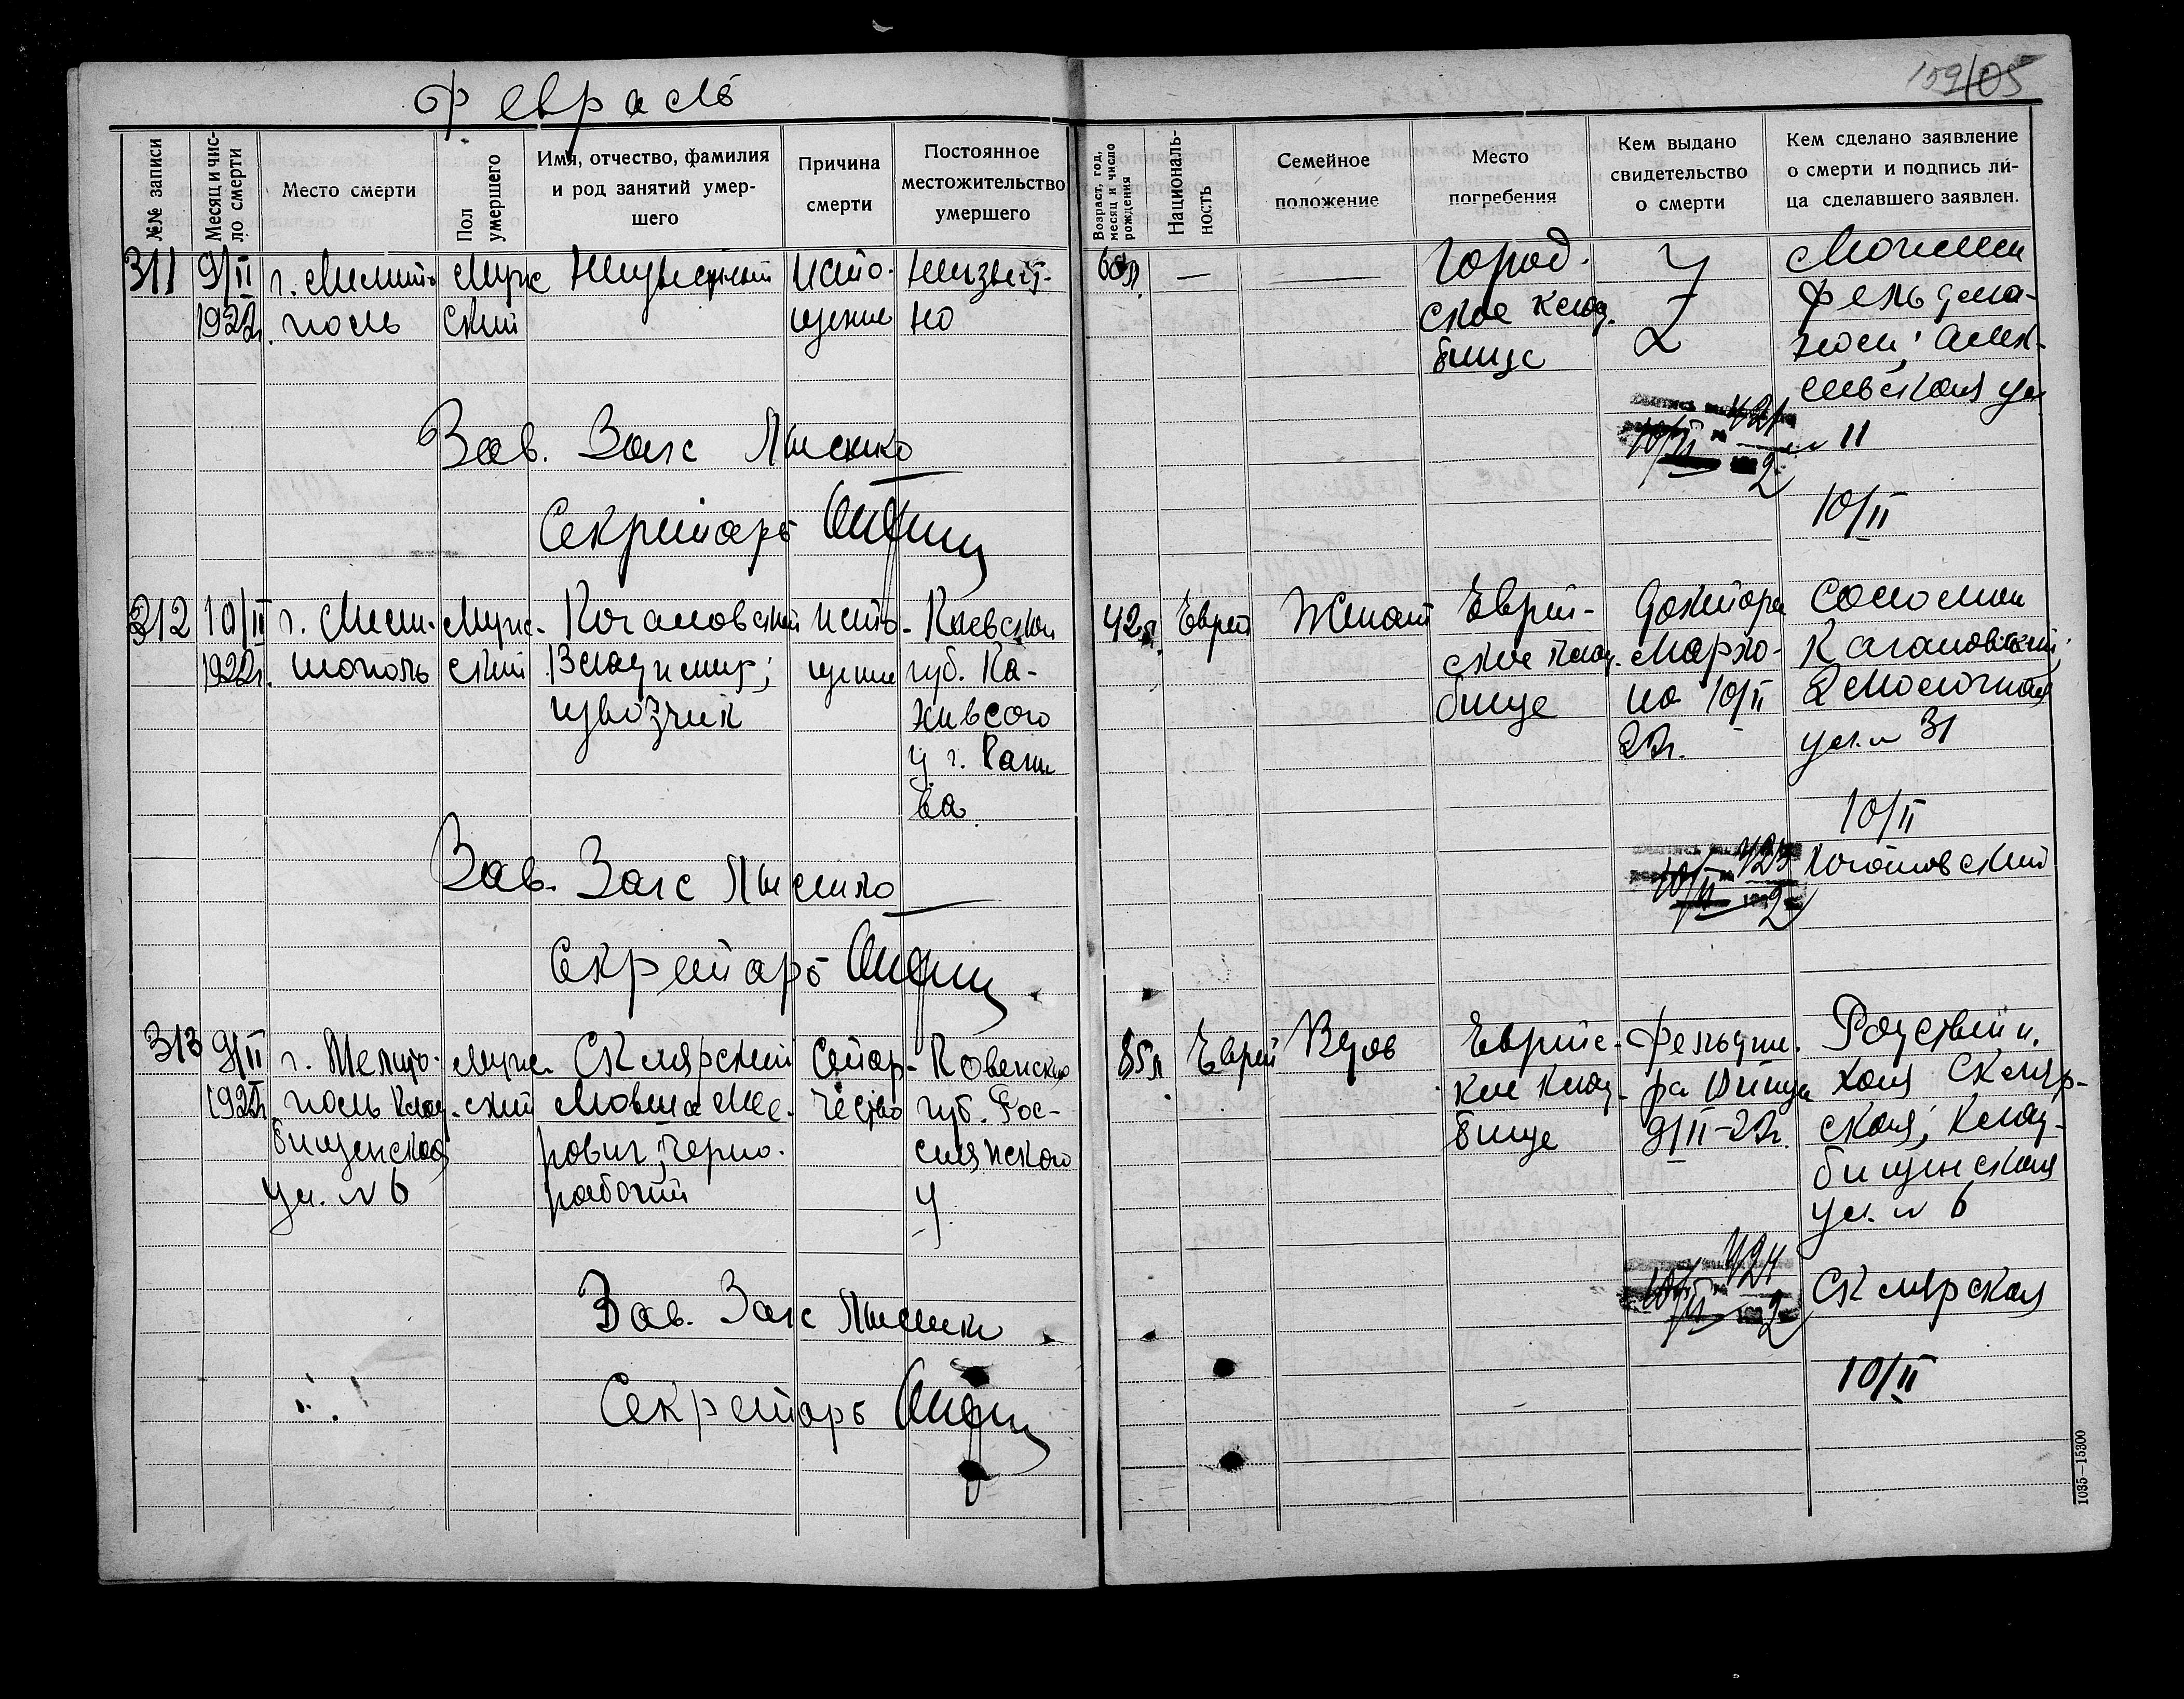 Февраль
159/105
№№ записи
Месяц и чис-
ло смерти
Место смерти
Пол
умершего
Имя, отчество, фамилия
и род занятий умер-
шего
Причина
смерти
Постоянное
местожительство
умершего
Возраст, год,
месяц и число
рождения
Националь-
ность
Семейное
положение
Место
погребения
Кем выдано
свидетельство
о смерти
Кем сделано заявление
о смерти и подпись ли-
ца сделавшего заявлен.
311
9/II
1922г.
г. Мелито-
поль
Муж
ский
Неизвестный
Исто-
щение
Неизвест-
но
—
Город-
ское клад-
бище
421
10/II
2
№ 11
10/II
Зав. Загс Лисенко
Секретарь
312
10/II
1922г.
г. Мели-
тополь
Муж-
ский
Кагановский
Владимир;
извозчик
Исто-
щение
Киевской
губ. Ка-
невского
у. г. Кане
ва
42л.
Еврей
Женат
Еврей-
ское клад-
бище
доктора
Марко-
на 10/II
22г.
Соломон
Кагановский;
2 Молочная
ул. № 31
10/II
423
10/II
2
Кагановский
Зав. Загс Лисенко
Секретарь
313
9/II
1922г.
г. Мелито-
поль Клад-
бищенская
ул. № 6
Муж-
ский
Склярский
Мовша Мее-
рович; черно-
рабочий
Стар-
чество
Ковенской
губ. Рос-
сиянского
у.
85л.
Еврей
Вдов
Еврейс-
кое клад-
бище
Фельдше-
ра
9/II-22г.
Скляр-
ская; Клад-
бищенская
ул. № 6
424
10/II
2
Склярская
10/II
Зав. Загс Лисенко
Секретарь
1035—15300